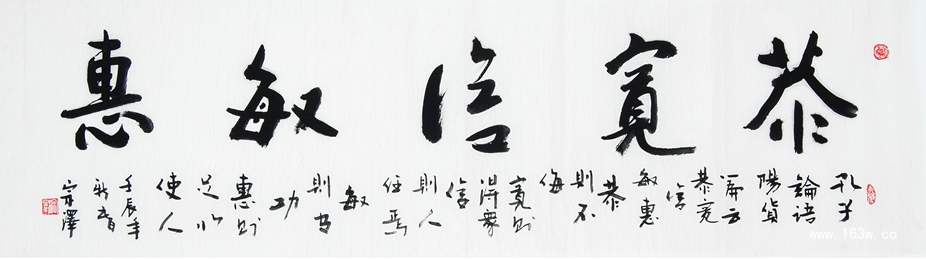 恭寬信敏惠
孔子
論語
陽貨
篇云
恭寬
信
敏惠
恭
則不
侮
寬則
得衆
信
則人
任焉
敏
則有
功
惠則
足以
使人
壬辰年
宗澤
www.163w.co